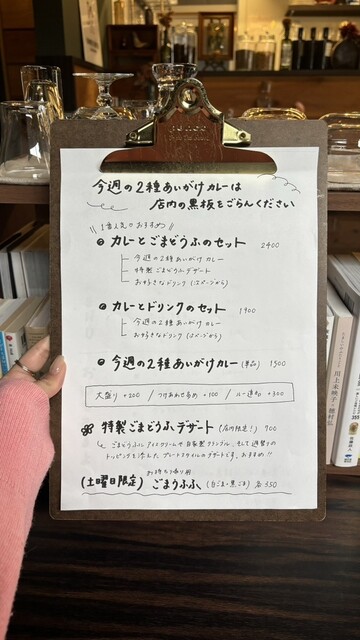 今週の2種あいがけカレーは
店内の黒板をごらんください
1番人気のおすすめ
カレーとごまどうふのセット 2400
今週の2種あいがけカレー
特製ごまどうふデザート
お好きなドリンク
カレーとドリンクのセット 1900
今週の2種あいがけカレー
お好きなドリンク
今週の2種あいがけカレー(単品) 1500
大盛り +200 / つけあわせ多め +100 / ルー追加 +300
特製ごまどうふデザート (店内限定!) 700
ごまどうふにアイスクリームや自家製グラノーラ、そして週替りの
トッピングを添えた、プレートスタイルのデザートです。おすすめ!!
お持ち帰り用
(土曜日限定) ごまうふふ (白ごま・黒ごま) 各350